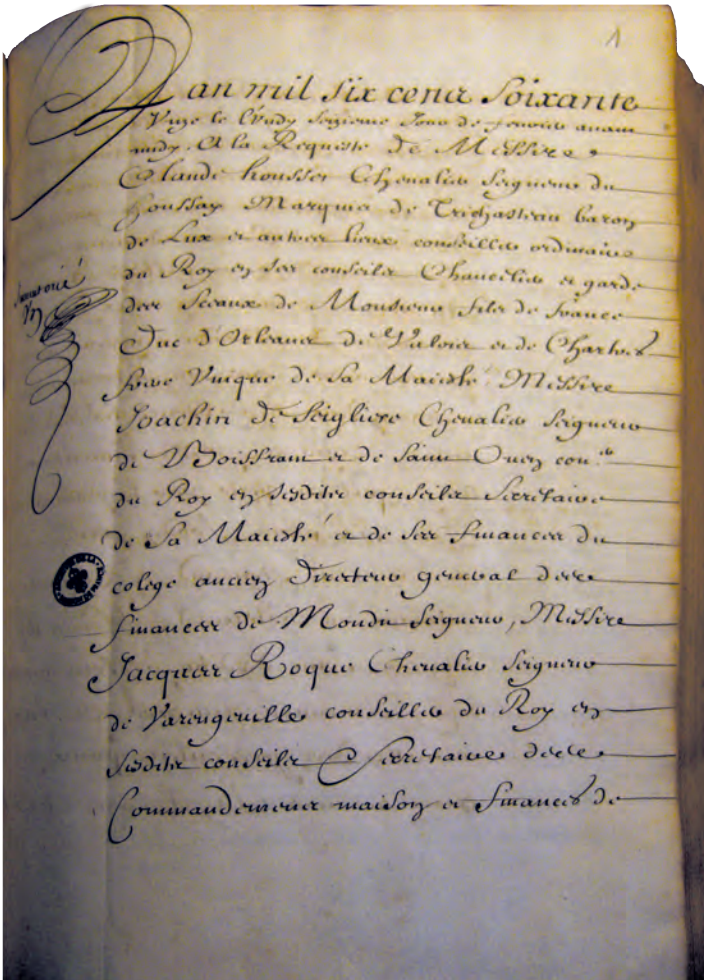 1
L'an mil six cens Soixante
Unze le Lundy seizieme Jour de feurier auant
midy. A la Requeste de Messire
Claude housset Cheualier Seigneur du
houssay Marquis de Trichasteau baron
de Lux et autres lieux conseiller ordinaire
du Roy en ses conseils Chancelier et garde
des Sceaux de Monsieur fils de france
Duc d'Orleans de Valois et de Chartres
frere Vnique de Sa Maiesté Messire
Joachin de Seigliere Cheualier Seigneur
de Boisfranc et de Saint Ouen con.er
du Roy en sesdits conseils Secretaire
de Sa Maiesté et de ses finances du
colege ancien Directeur general des
finances de Mondit Seigneur, Messire
Jacques Roque Cheualier Seigneur
de Varengeuille conseiller du Roy en
sesdits conseils Secretaire des
Commandemens maison et finances de